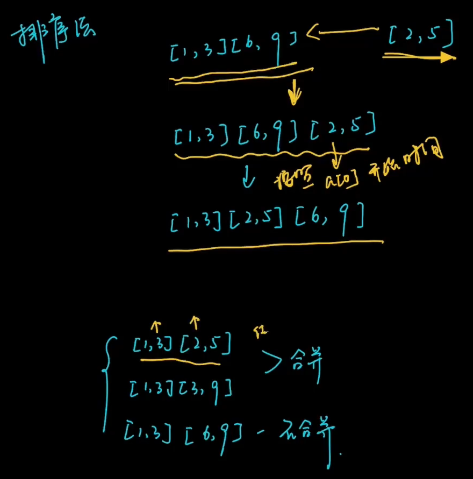 排序法
[1,3][6,9] ← [2,5]
[1,3][6,9][2,5]
按照 a[0] 开始时间
[1,3][2,5][6,9]
[1,3][2,5]
> 合并
[1,3][3,9]
[1,3][6,9] - 不合并.